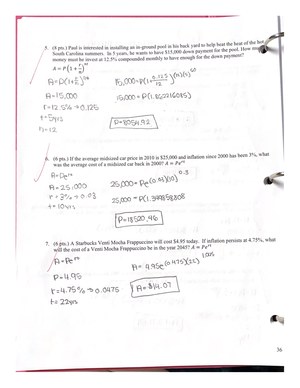 5. (6 pts.) Paul is interested in installing an in-ground pool in his back yard to help beat the heat of the hot
South Carolina summers. In 5 years, he wants to have $15,000 down payment for the pool. How much
money must he invest at 12.5% compounded monthly to have enough for the down payment?
A = P(1 + r/n)^nt
A=P(1+r/n)^nt
A=15,000
r=12.5%⇒0.125
t=5yrs
n=12
15,000=P(1+0.125/12)^(12)(5)
15,000=P(1.862216085)
P=8054.92
6. (6 pts.) If the average midsized car price in 2010 is $25,000 and inflation since 2000 has been 3%, what
was the average cost of a midsized car back in 2000? A = Pe^rt
A=Pe^rt
A=25,000
r=3%⇒0.03
t=10yrs
25,000=Pe^(0.03)(10) 0.3
25,000=P(1.349858808)
P=18520.46
7. (6 pts.) A Starbucks Venti Mocha Frappuccino will cost $4.95 today. If inflation persists at 4.75%, what
will the cost of a Venti Mocha Frappuccino be in the year 2045? A = Pe^rt
A=Pe^rt
P=4.95
r=4.75%⇒0.0475
t=22yrs
A=4.95e^(0.0475)(22) 1.045
A=$14.07
36